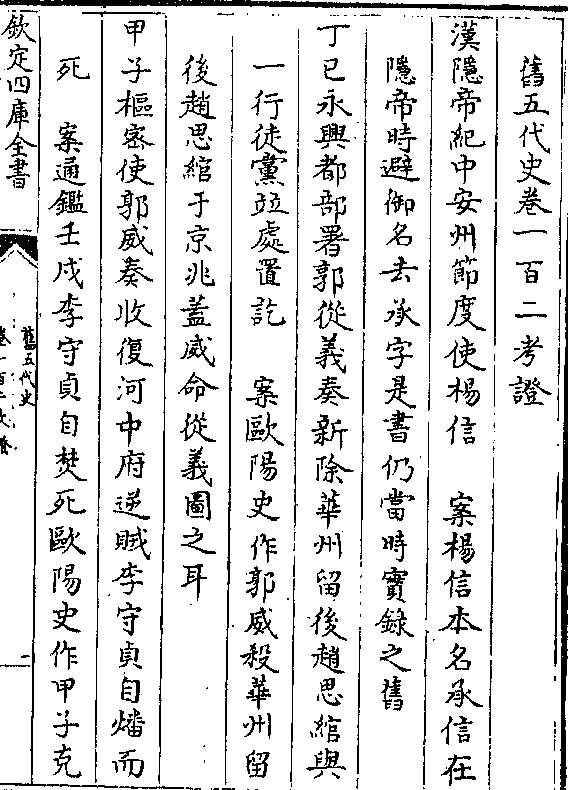 舊五代史卷一百二考證
漢隱帝紀中安州節度使楊信　案楊信本名承信在
隱帝時避御名去承字是書仍當時實錄之舊
丁巳永興都部署郭從義奏新除華州留後趙思綰與
一行徒黨竝處置訖　案歐陽史作郭威殺華州留
後趙思綰于京兆蓋威命從義圖之耳
甲子樞密使郭威奏收復河中府逆賊李守貞自燔而
死　案通鑑壬戌李守貞自焚死歐陽史作甲子克
欽定四庫全書
舊五代史
卷一百二考證
一